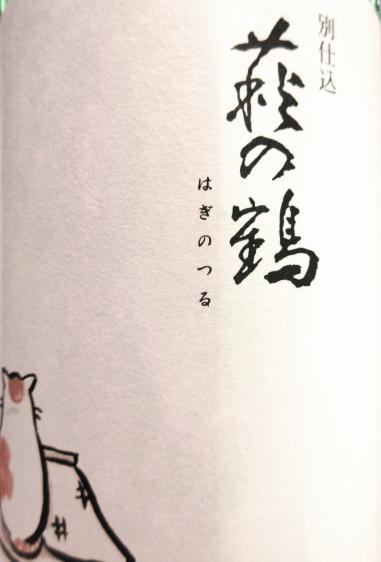 別仕込
萩の鶴
はぎのつる